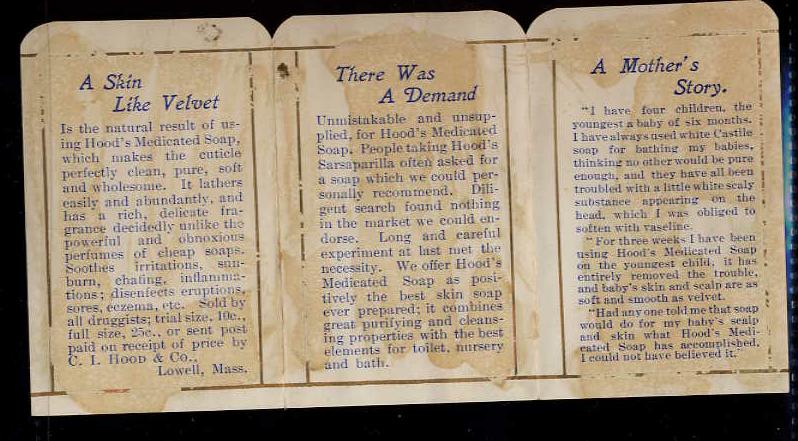 A Skin
Like Velvet
Is the natural result of us-
ing Hood's Medicated Soap,
which makes the cuticle
perfectly clean, pure, soft
and wholesome. It lathers
easily and abundantly, and
has a rich, delicate fra-
grance decidedly unlike the
powerful and obnoxious
perfumes of cheap soaps.
Soothes irritations, sun-
burn, chafing, inflamma-
tions; disenfects eruptions,
sores, eczema, etc. Sold by
all druggists; trial size, 10c.,
full size, 25c., or sent post
paid on receipt of price by
C. I. HOOD & Co.,
Lowell, Mass.
There Was
A Demand
Unmistakable and unsup-
plied, for Hood's Medicated
Soap. People taking Hood's
Sarsaparilla often asked for
a soap which we could per-
sonally recommend. Dili-
gent search found nothing
in the market we could en-
dorse. Long and careful
experiment at last met the
necessity. We offer Hood's
Medicated Soap as posi-
tively the best skin soap
ever prepared; it combines
great purifying and cleans-
ing properties with the best
elements for toilet, nursery
and bath.
A Mother's
Story.
"I have four children, the
youngest a baby of six months.
I have always used white Castile
soap for bathing my babies,
thinking no other would be pure
enough, and they have all been
troubled with a little white scaly
substance appearing on the
head, which I was obliged to
soften with vaseline.
"For three weeks I have been
using Hood's Medicated Soap
on the youngest child, it has
entirely removed the trouble,
and baby's skin and scalp are as
soft and smooth as velvet.
"Had any one told me that soap
would do for my baby's scalp
and skin what Hood's Medi-
cated Soap has accomplished,
I could not have believed it."